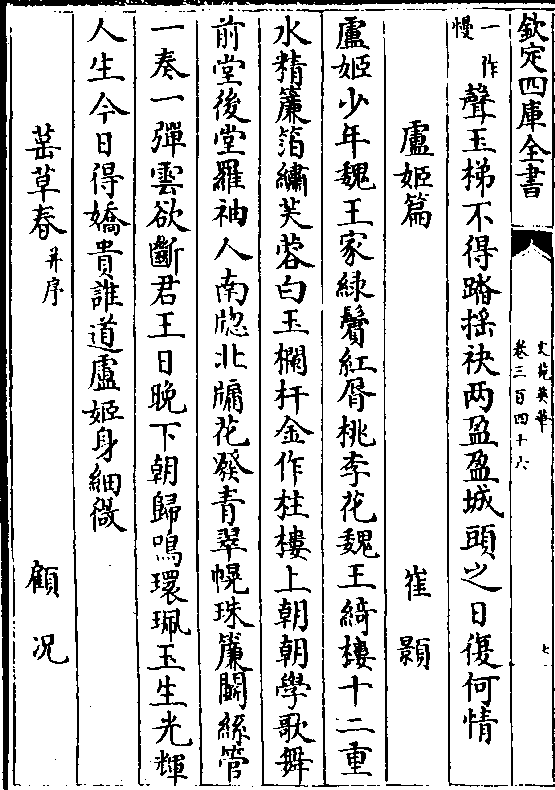 欽定四庫全書
文苑英華
卷三百四十六
七
一作慢聲玉梯不得踏揺袂两盈盈城頭之日復何情
盧姬篇 崔顥
盧姬少年魏王家緑鬢紅唇桃李花魏王綺樓十二重
水精簾箔繡芙蓉白玉欄杆金作柱樓上朝朝學歌舞
前堂後堂羅袖人南牕北牖花發青翠幌珠簾鬭絲管
一奏一彈雲欲斷君王日晚下朝歸鳴環珮玉生光輝
人生今日得嬌貴誰道盧姬身細微
萶草春并序 顧况